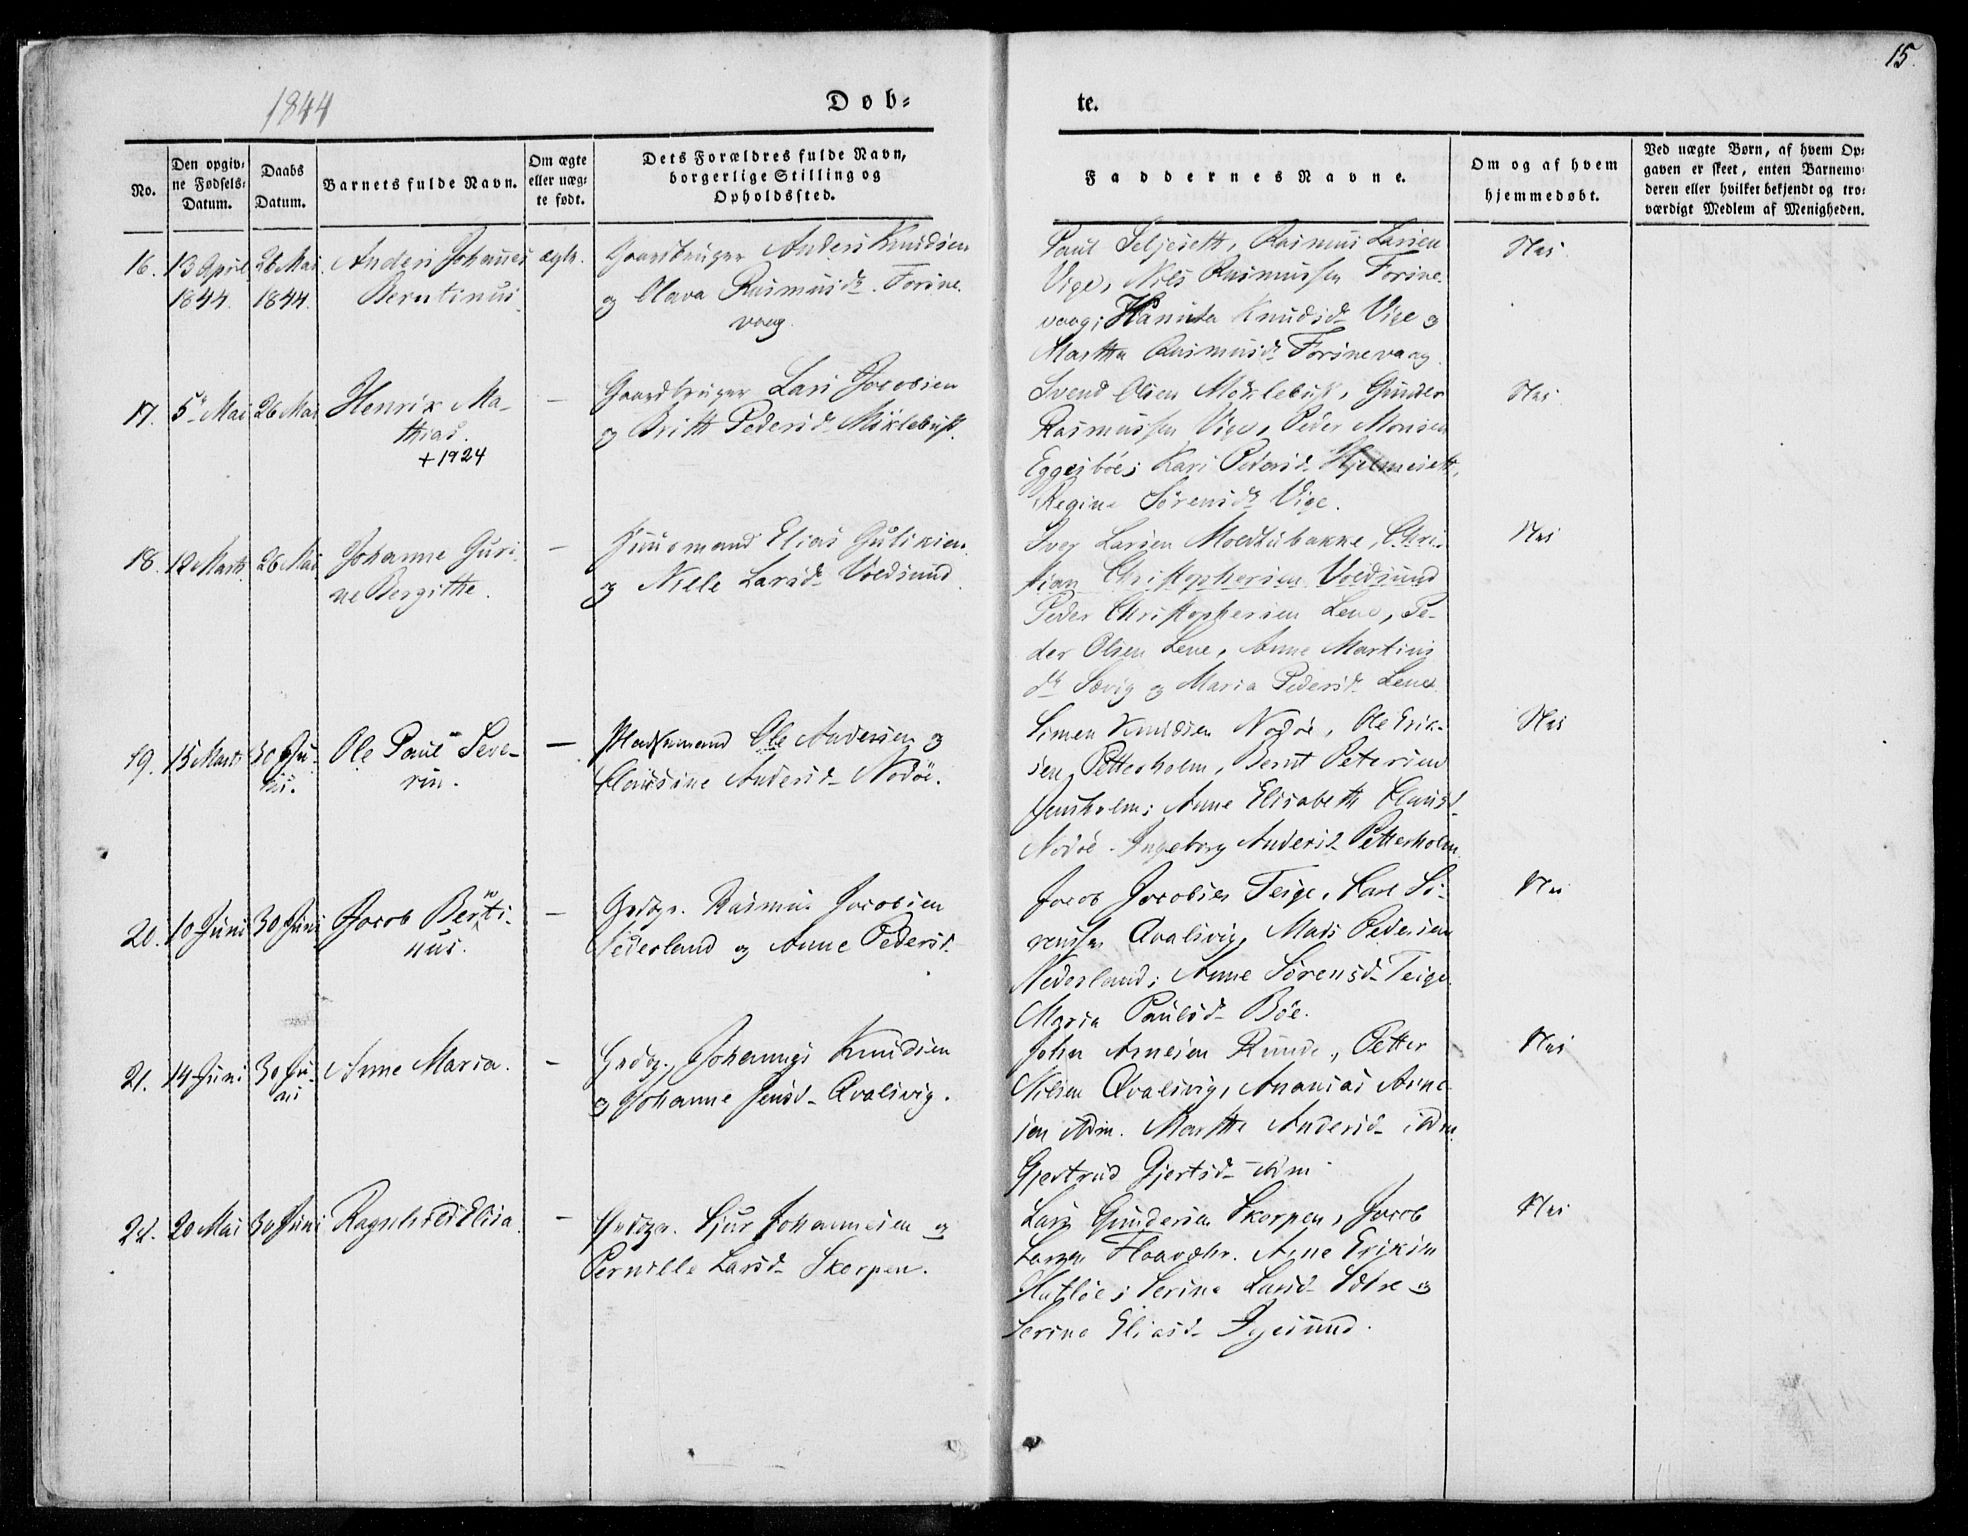 15.
1844
Døb-
te.
No.
Den opgiv-
ne Fødsels-
Datum.
Daabs
Datum.
Barnets fulde Navn.
Om ægte
eller uæg-
te født.
Dets Forældres fulde Navn,
borgerlige Stilling og
Opholdssted.
Faddernes Navne.
Om og af hvem
hjemmedøbt.
Ved uægte Børn, af hvem Op-
gaven er skeet, enten Barnemo-
deren eller hvilket bekjendt og tro-
værdigt Medlem af Menigheden.
16. 13 April 26 Mai Anders Johannes ægte. Gaardbruger Anders Knudsen
1844. 1844. Berntinus og Olava Rasmusd. Torine-
vaag.
Paul Seljesett, Rasmus Larsen
Vige, Nils Rasmussen Torine-
vaag; Knudsd Vige og
Martha Rasmusd. Torinevaag.
17. 5 Mai 26 Mai Henrik Ma- — Gaardbruger Lars Jacobsen
thias. og Britt Pedersd. Möklebust.
+ 1924
Svend Olsen Möklebust, Gunder
Rasmussen Vige, Peder Monsen
Eggesböe; Kari Pedersd. Hjelmeseth,
Regine Sörensd. Vige.
18. 12 Marts 26 Mai Johanne Guri- — Huusmand Elias Guliksen
ne Bergitthe. og Nille Larsd. Voldsund.
Iver Larsen Moldtubakke, Chri-
stian Christophersen Voldsund
Peder Christophersen Lene, Pe-
der Olsen Lene, Anne Martins
d. Sævig og Maria Pedersd. Lene.
19. 15 Marts 30 Ju- Ole Paul Seve- — Pladsmand Ole Andersen og
ni. rin. Clausine Andersd. Nödöe.
Simen Knudsen Nödöe, Ole Erik-
sen Petterholm, Bernt Petersen
Jensholm; Anne Elisabeth Clausd.
Nödöe. Ingeborg Andersd. Petterholm.
20. 10 Juni 30 Juni Jacob Bernti- — Grdbgr. Rasmus Jacobsen
nus. Nederland og Anne Pedersd.
Jacob Jacobsen Teige, Karl Sö-
rensen Qvalsvig, Mads Pedersen
Nederland; Anne Sörensd. Teige.
Maria Paulsd. Böe.
21. 14 Juni 30 Ju- Anne Maria. — Grdbg. Johannes Knudsen
ni og Johanne Jensd. Qvalsvig.
John Arnesen Runde, Petter
Nilsen Qvalsvig, Ananias Arne-
sen idm. Marthe Andersd. idm.
Gjertrud Gjertsd. idm.
22. 20 Mai 30 Juni Ragnhild Elisa. — Grdbgr. Sjur Johannesen og
Pernille Larsd. Skorpen.
Lars Gundersen Skorpen, Jacob
Larsen Flaavær. Arne Eriksen
Hatlöe; Serine Larsd. og
Serine Eliasd. Igesund.